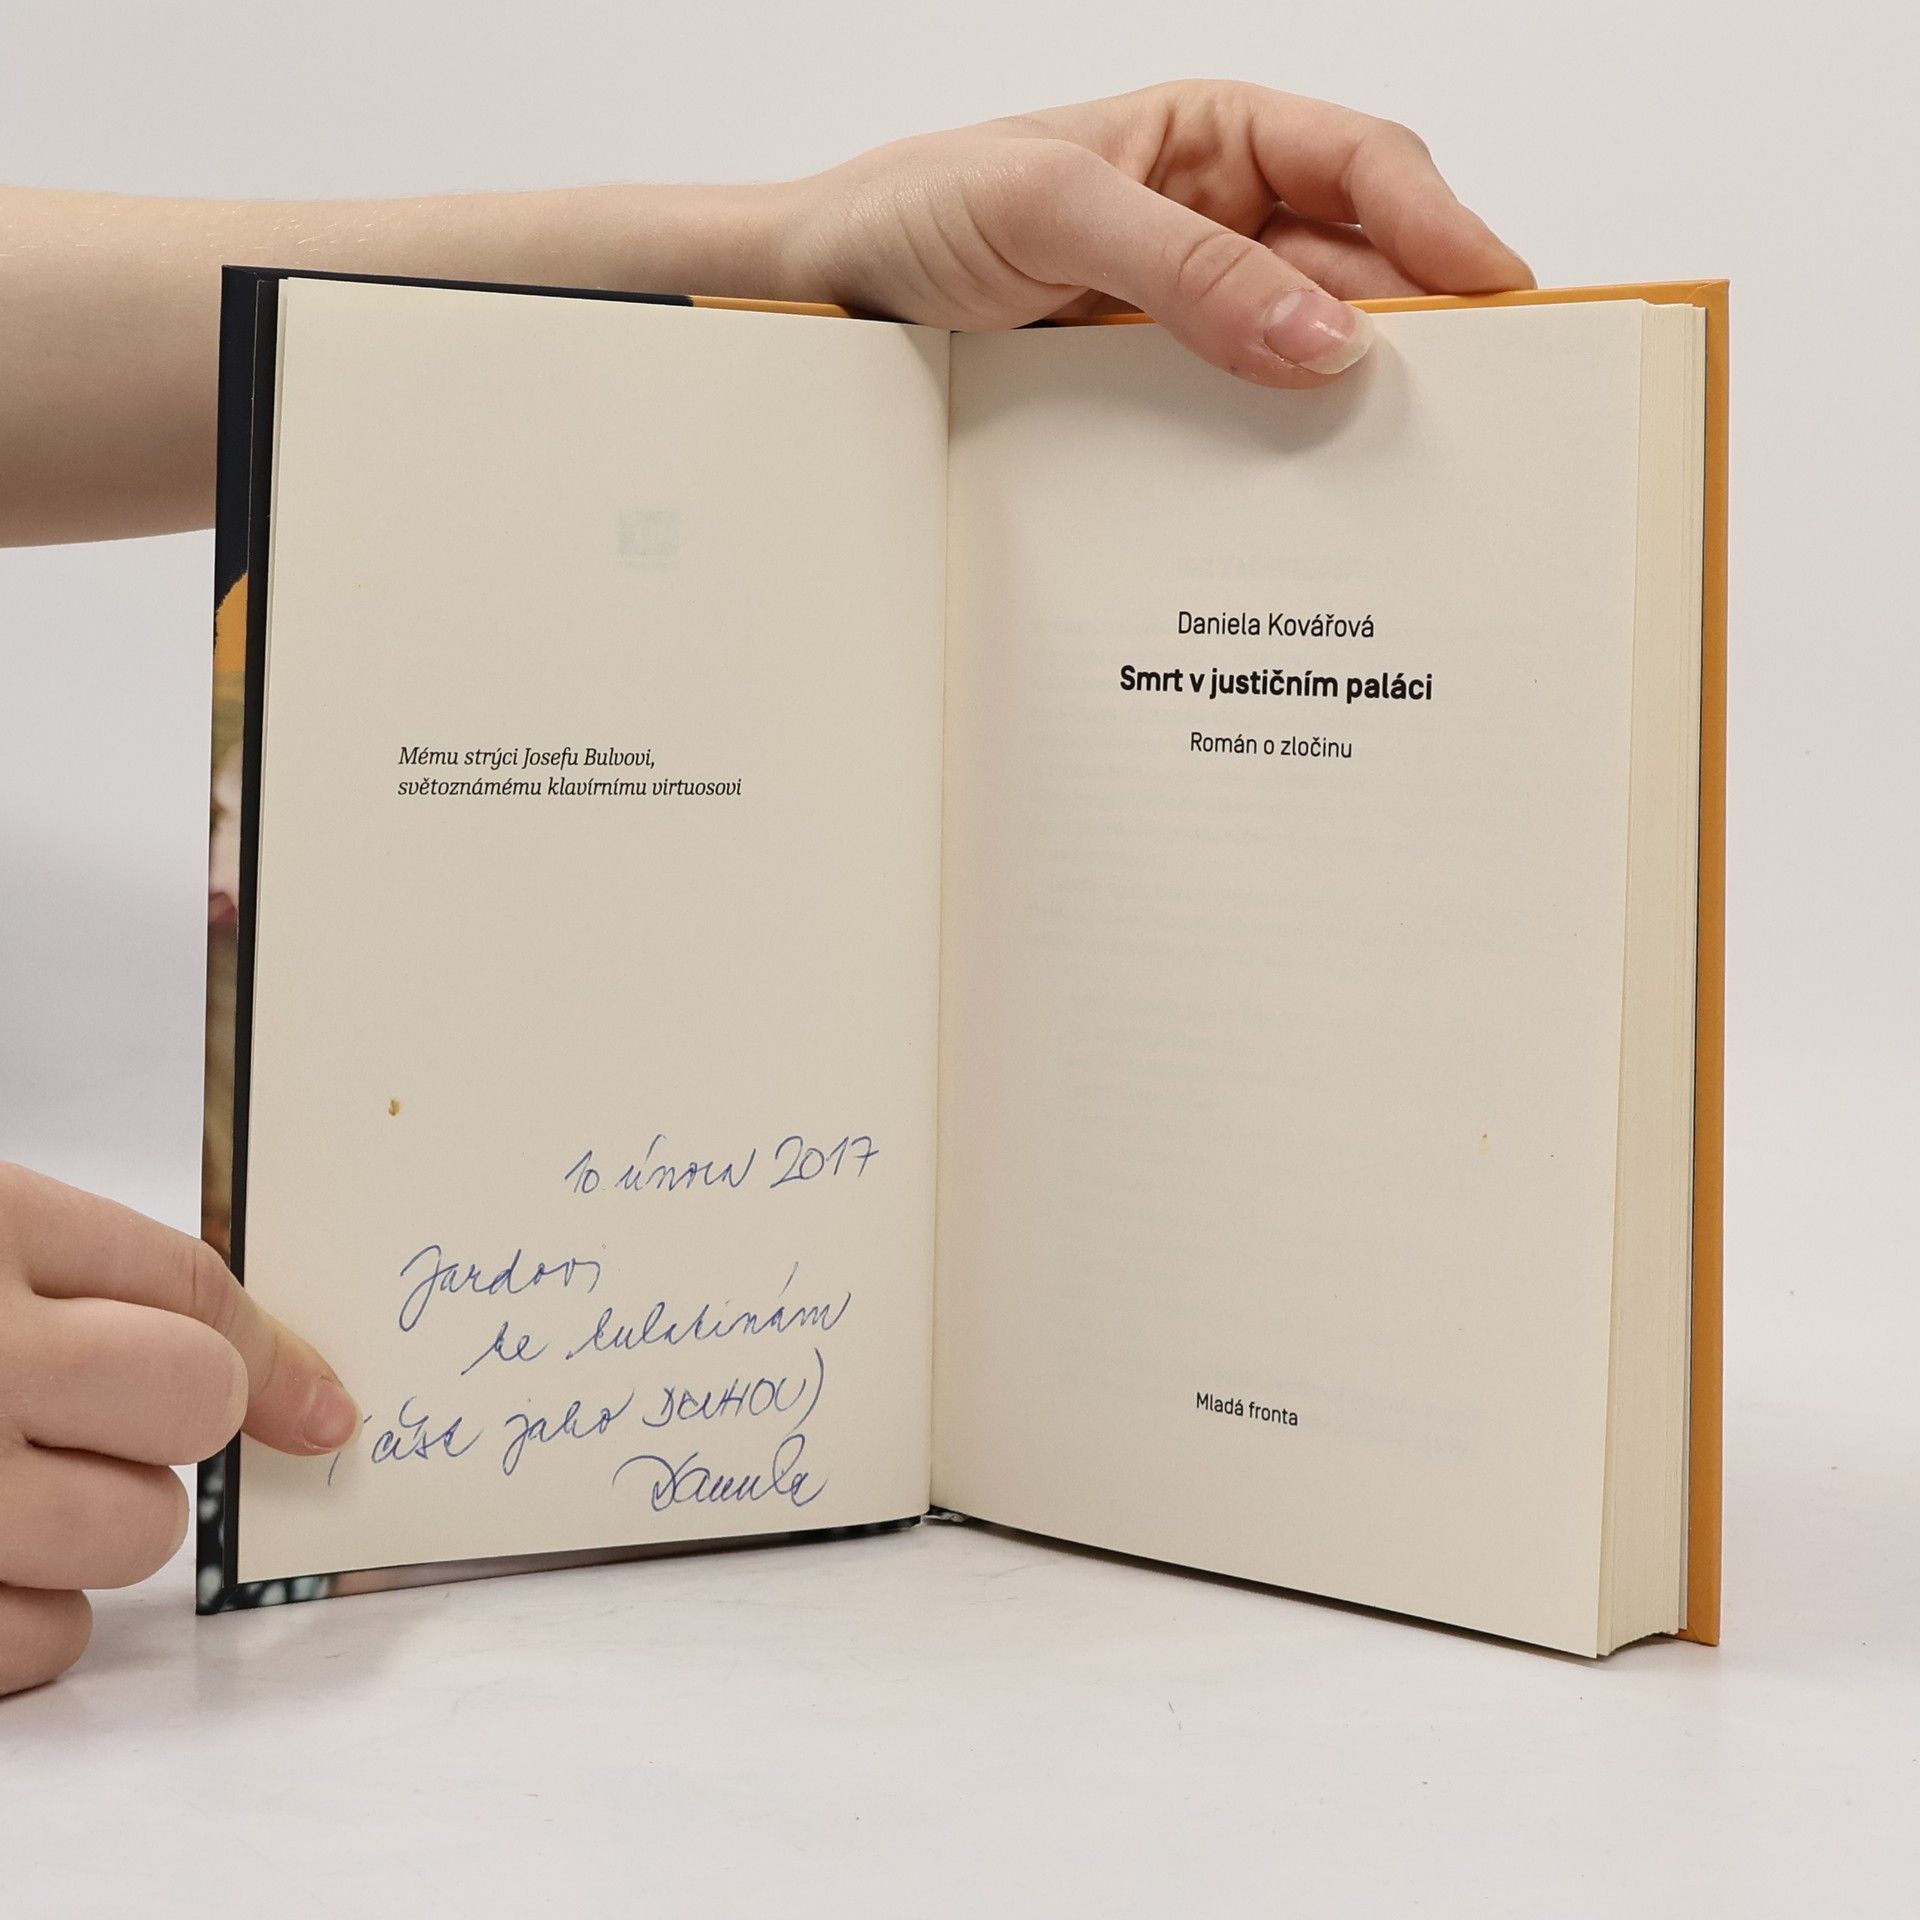 Mému strýci Josefu Bulvovi,
světoznámému klavírnímu virtuosovi
10. února 2017
Jardovi
ke kulatinám
(část jako DRUHOU)
Daniela
Daniela Kovářová
Smrt v justičním paláci
Román o zločinu
Mladá fronta